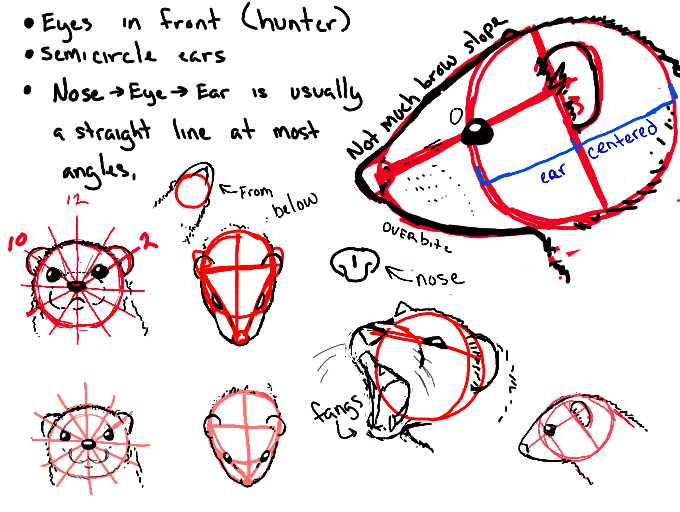 • Eyes in front (hunter)
• Semicircle ears
• Nose → Eye → Ear is usually
a straight line at most
angles.
Not much brow slope
ear centered
OVERBITE
← From
below
12
10
2
← nose
fangs